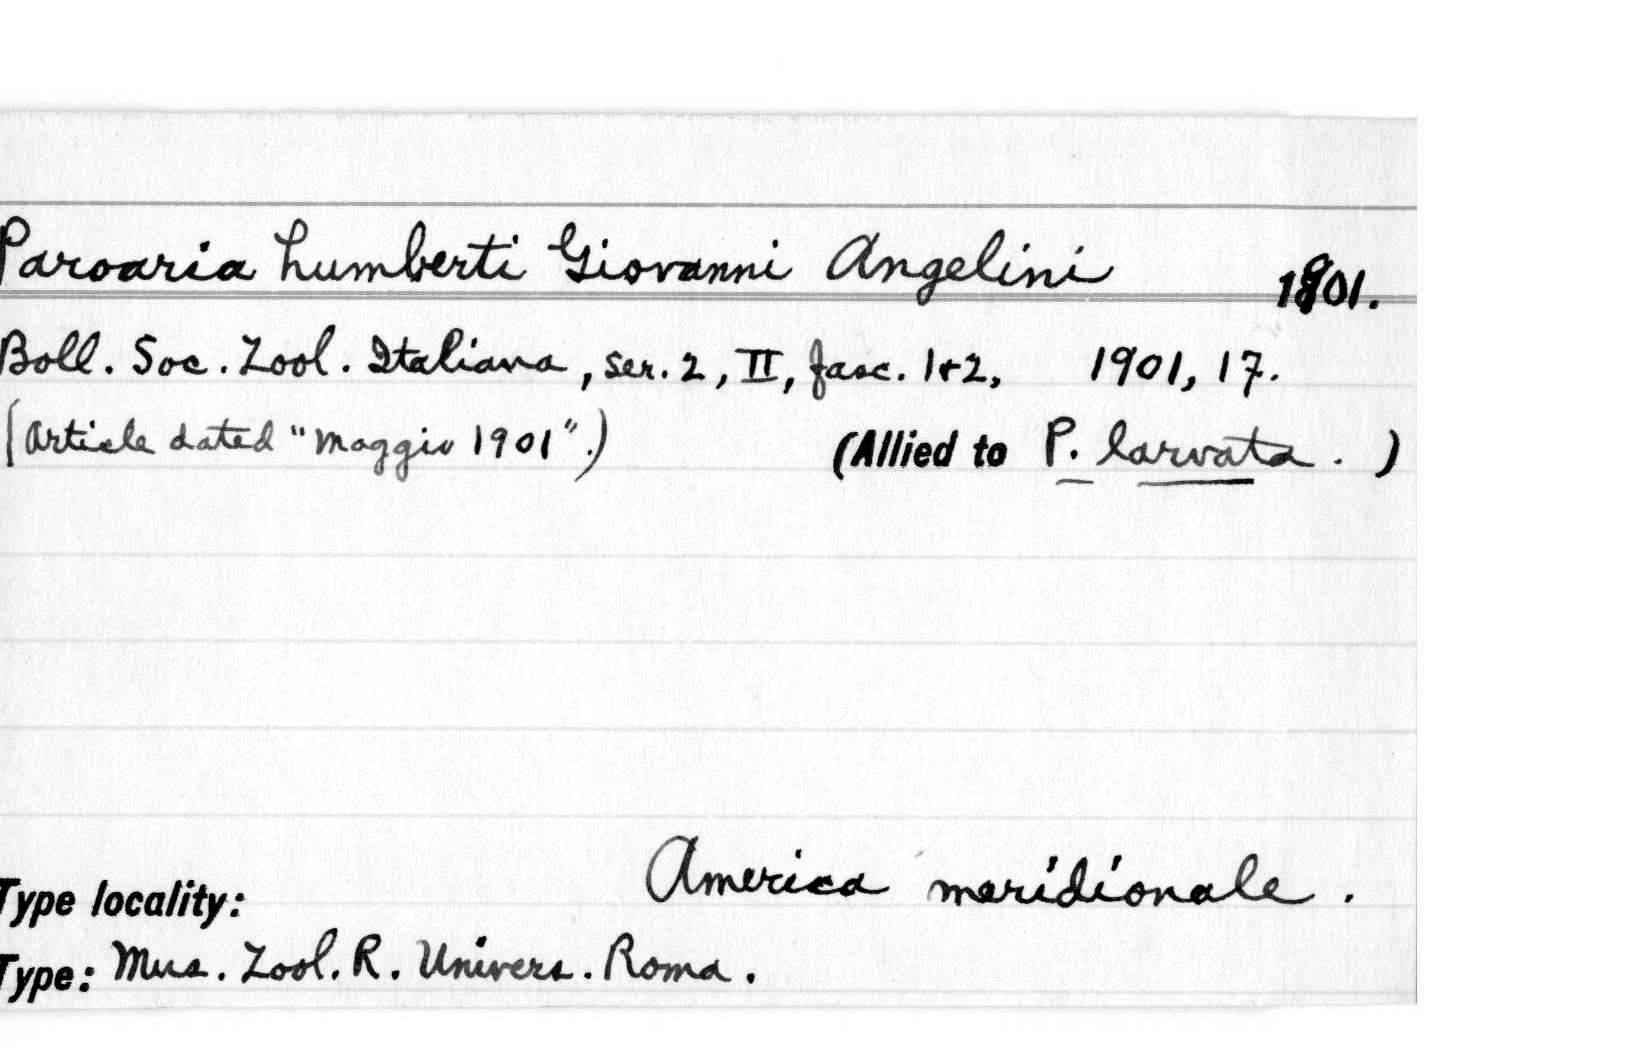 Paroaria humberti Giovanni Angelini 1901.
Boll. Soc. Zool. Italiana, ser. 2, II, fasc. 1+2, 1901, 17.
(Article dated "Maggio 1901".) (Allied to P. larvata. )
America meridionale.
Type locality:
Type: Mus. Zool. R. Univers. Roma.